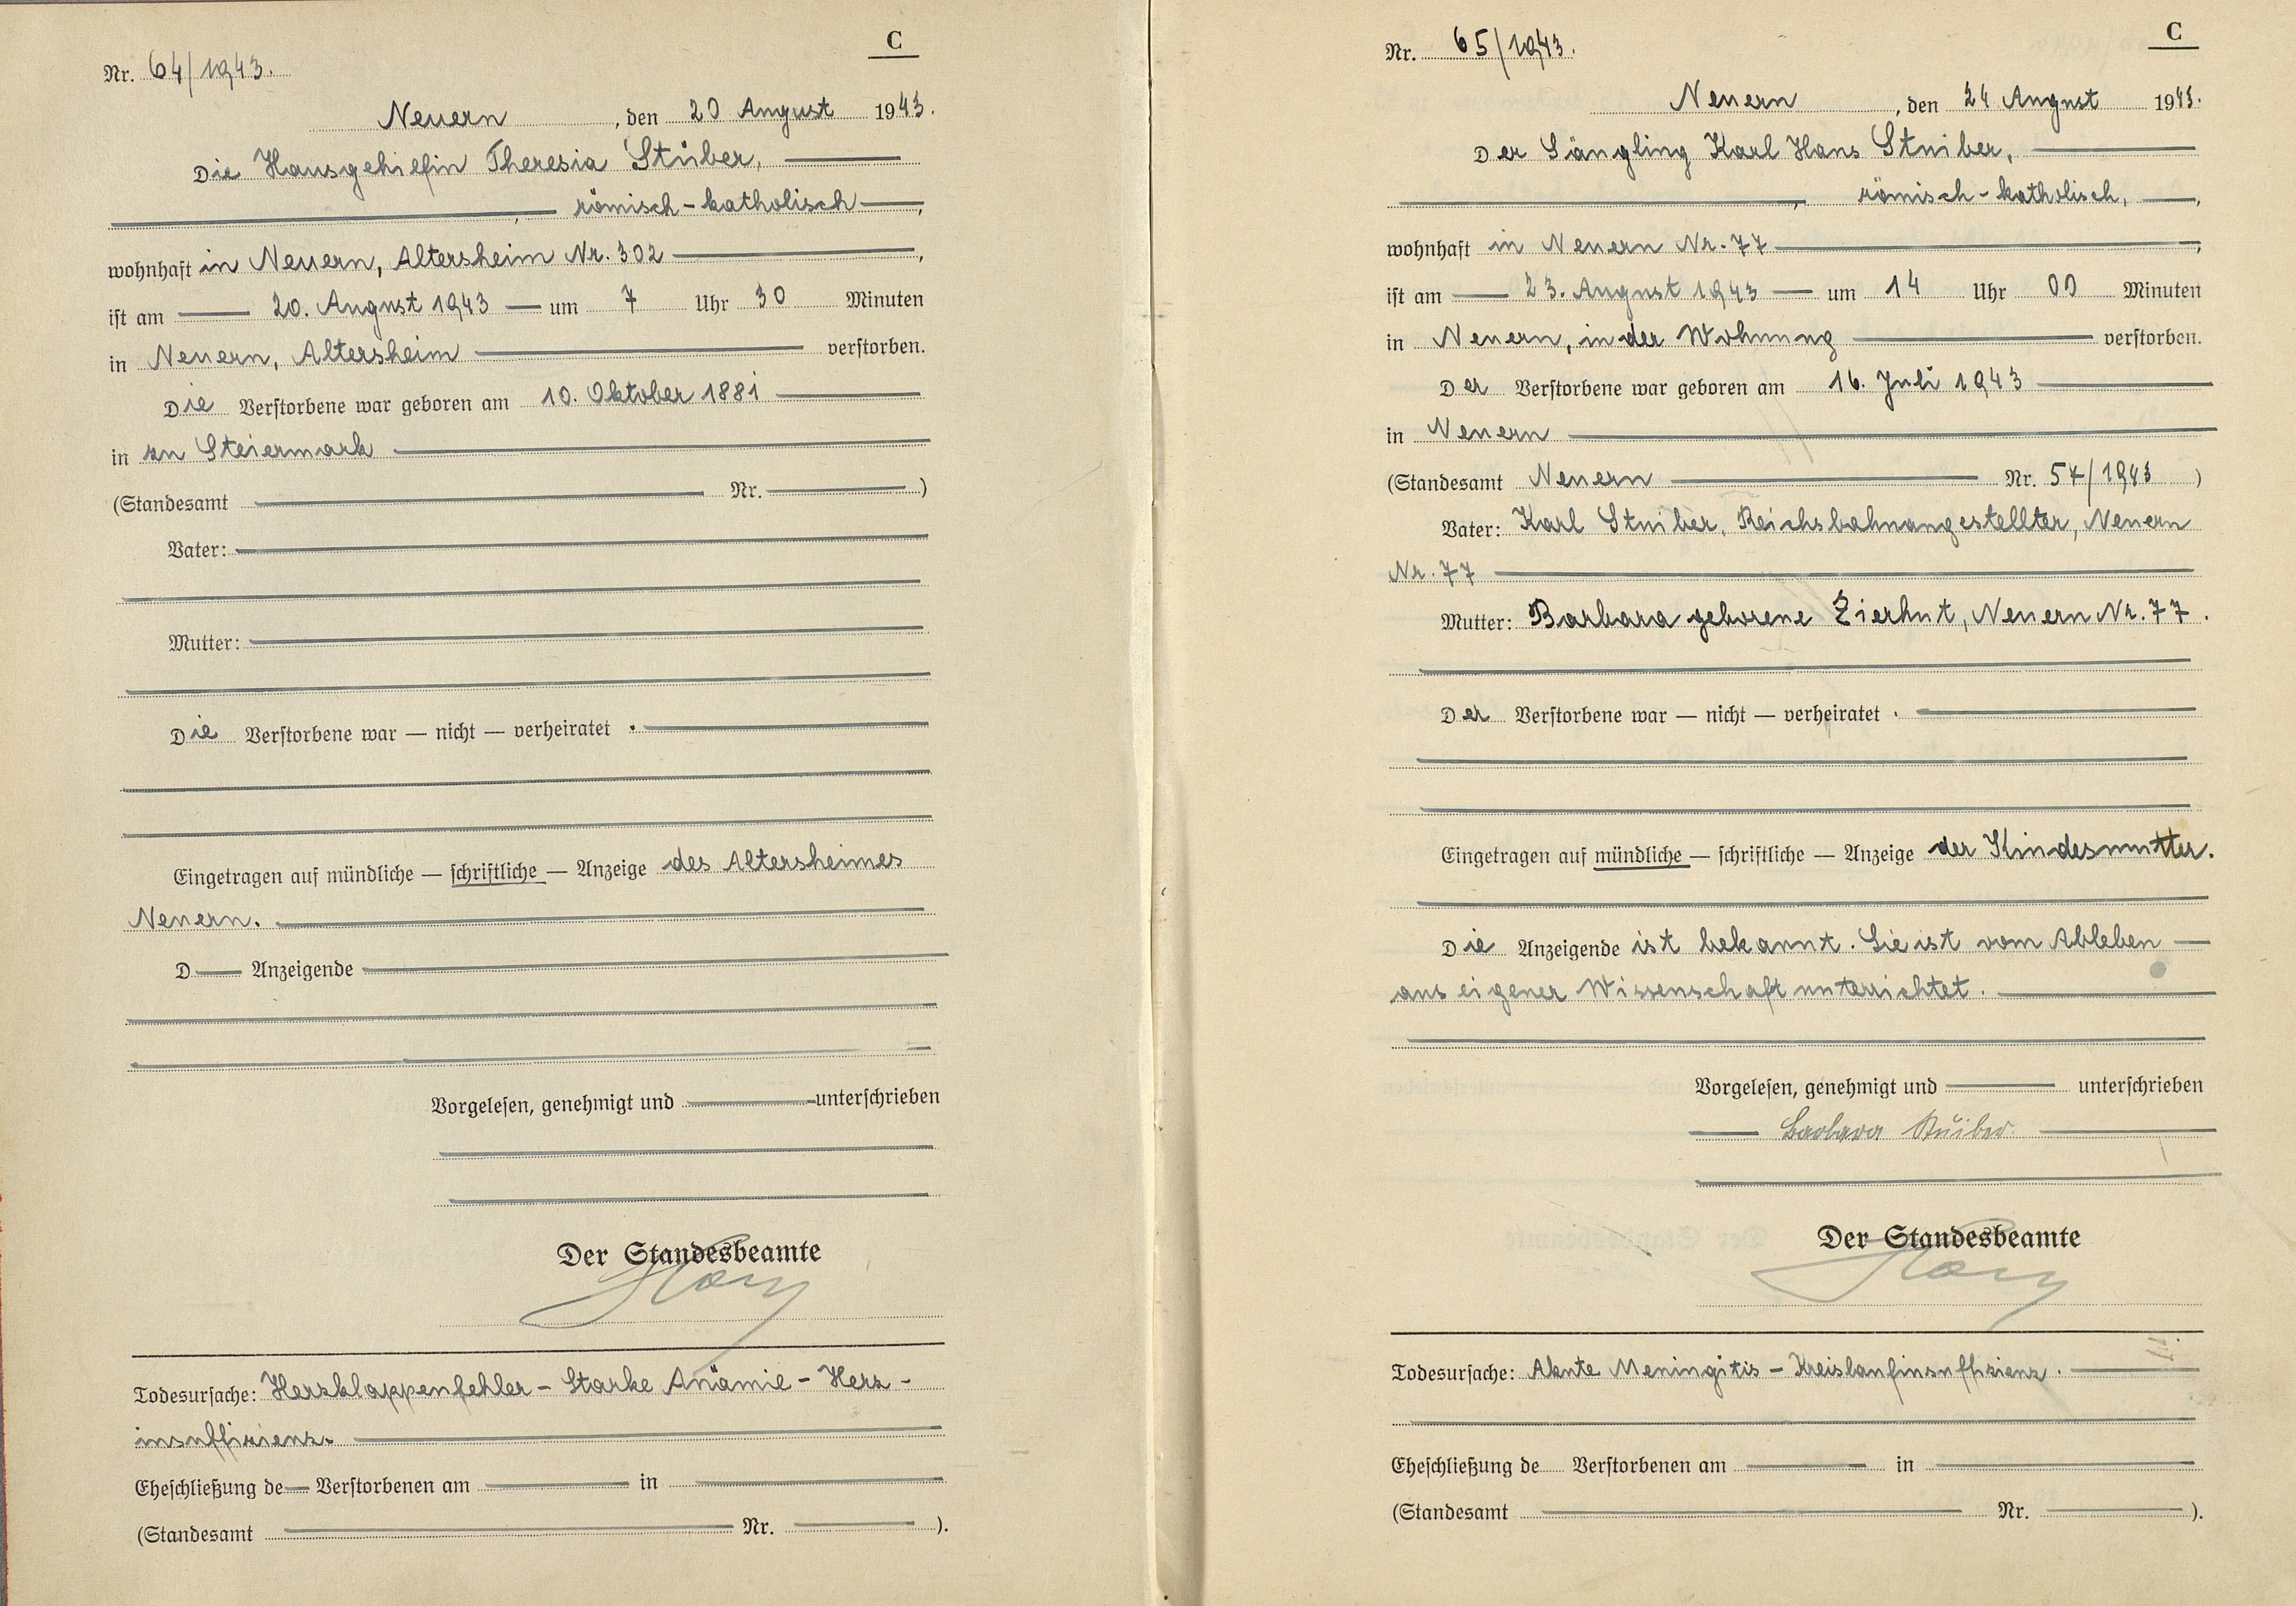 C
Nr. 64/1943.
Neuern, den 20 August 1943.
Die Hausgehilfin Theresia Stüber,
, römisch-katholisch,
wohnhaft in Neuern, Altersheim Nr. 302,
ist am 20. August 1943 um 7 Uhr 30 Minuten
in Neuern, Altersheim verstorben.
Die Verstorbene war geboren am 10. Oktober 1881
in zu Steiermark
(Standesamt Nr. )
Vater:
Mutter:
Die Verstorbene war — nicht — verheiratet.
Eingetragen auf mündliche — schriftliche — Anzeige des Altersheimes
Neuern.
D Anzeigende
Vorgelesen, genehmigt und unterschrieben
Der Standesbeamte
Todesursache: Herzklappenfehler - Starke Anämie - Herz-
insuffizienz.
Eheschließung de Verstorbenen am in
(Standesamt Nr. ).
C
Nr. 65/1943.
Neuern, den 24 August 1943.
Der Säugling Karl Hans Stuiber,
, römisch-katholisch,
wohnhaft in Neuern Nr. 77,
ist am 23. August 1943 um 14 Uhr 00 Minuten
in Neuern, in der Wohnung verstorben.
Der Verstorbene war geboren am 16. Juli 1943
in Neuern
(Standesamt Neuern Nr. 57/1943)
Vater: Karl Stuiber, Reichsbahnangestellter, Neuern
Nr. 77
Mutter: Barbara geborene Zierhut, Neuern Nr. 77.
Der Verstorbene war — nicht — verheiratet.
Eingetragen auf mündliche — schriftliche — Anzeige der Kindesmutter.
Die Anzeigende ist bekannt. Sie ist vom Ableben
aus eigener Wissenschaft unterrichtet.
Vorgelesen, genehmigt und unterschrieben
Barbara Stuiber.
Der Standesbeamte
Todesursache: Akute Meningitis - Kreislaufinsuffizienz.
Eheschließung de Verstorbenen am in
(Standesamt Nr. ).